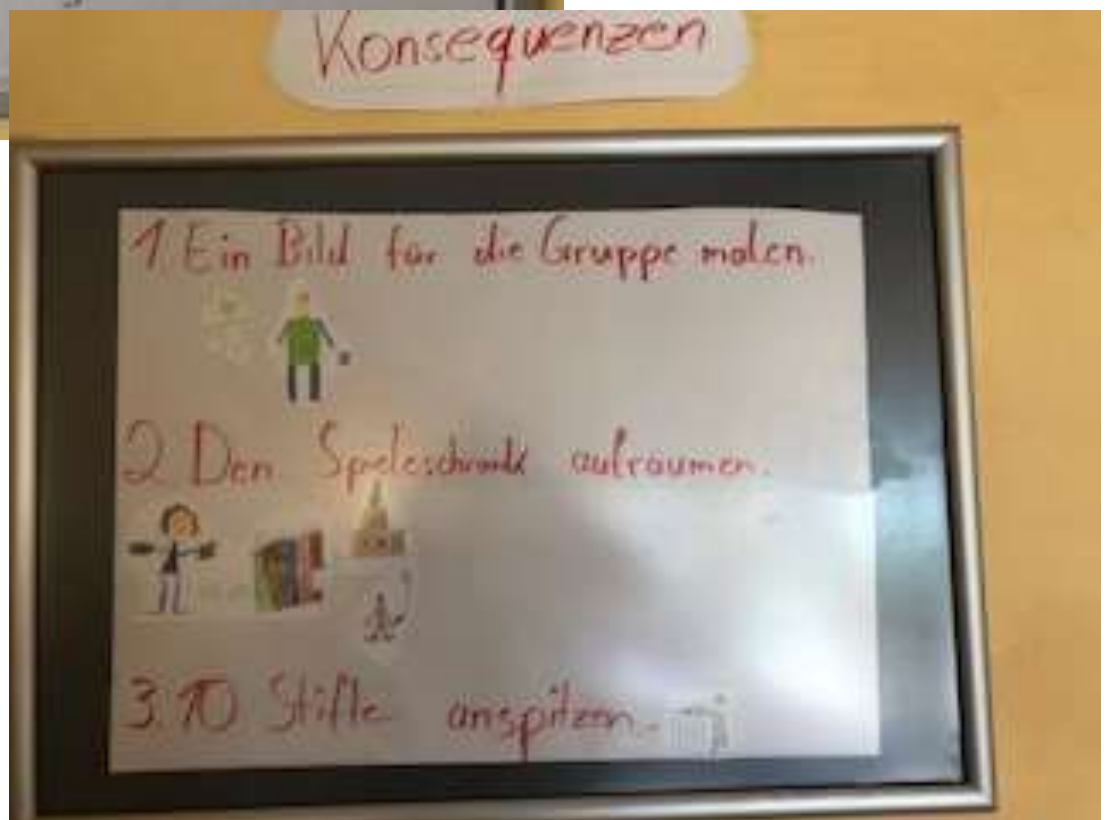 Konsequenzen
1. Ein Bild für die Gruppe malen.
2. Den Spieleschrank aufräumen.
3. 10 Stifte anspitzen.